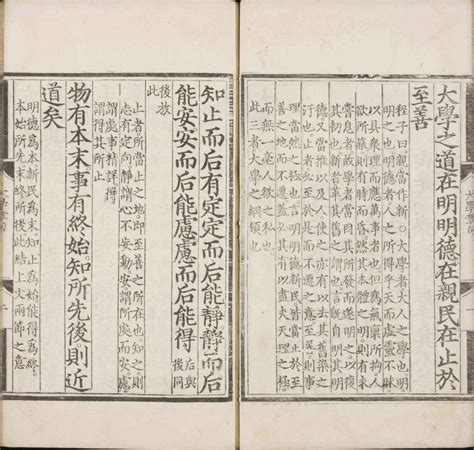 大學之道在明明德在親民在止於
至善
程子曰親當作新。大學者大人之學也明
明之也明德者人之所得乎天而虛靈不昧
以具衆理而應萬事者也但為氣稟所拘人
欲所蔽則有時而昏然其本體之明則有未
嘗息者故學者當因其所發而遂明之以復
其初也新者革其舊之謂也言既自明其明
德又當推以及人使之亦有以去其舊染之
汙也止者必至於是而不遷之意至善則事
理當然之極也言明明德新民皆當止於至
善之地而不遷蓋必其有以盡夫天理之極
而無一毫人欲之私也
此三者大學之綱領也
知止而后有定定而后能靜靜而后
能安安而后能慮慮而后能得
后與
後同
後放
此
止者所當止之地即至善之所在也知之則
志有定向靜謂心不妄動安謂所處而安慮
謂處事精詳得
謂得其所止
物有本末事有終始知所先後則近
道矣
明德為本新民為末知止為始能得為終
本始所先末終所後此結上文兩節之意